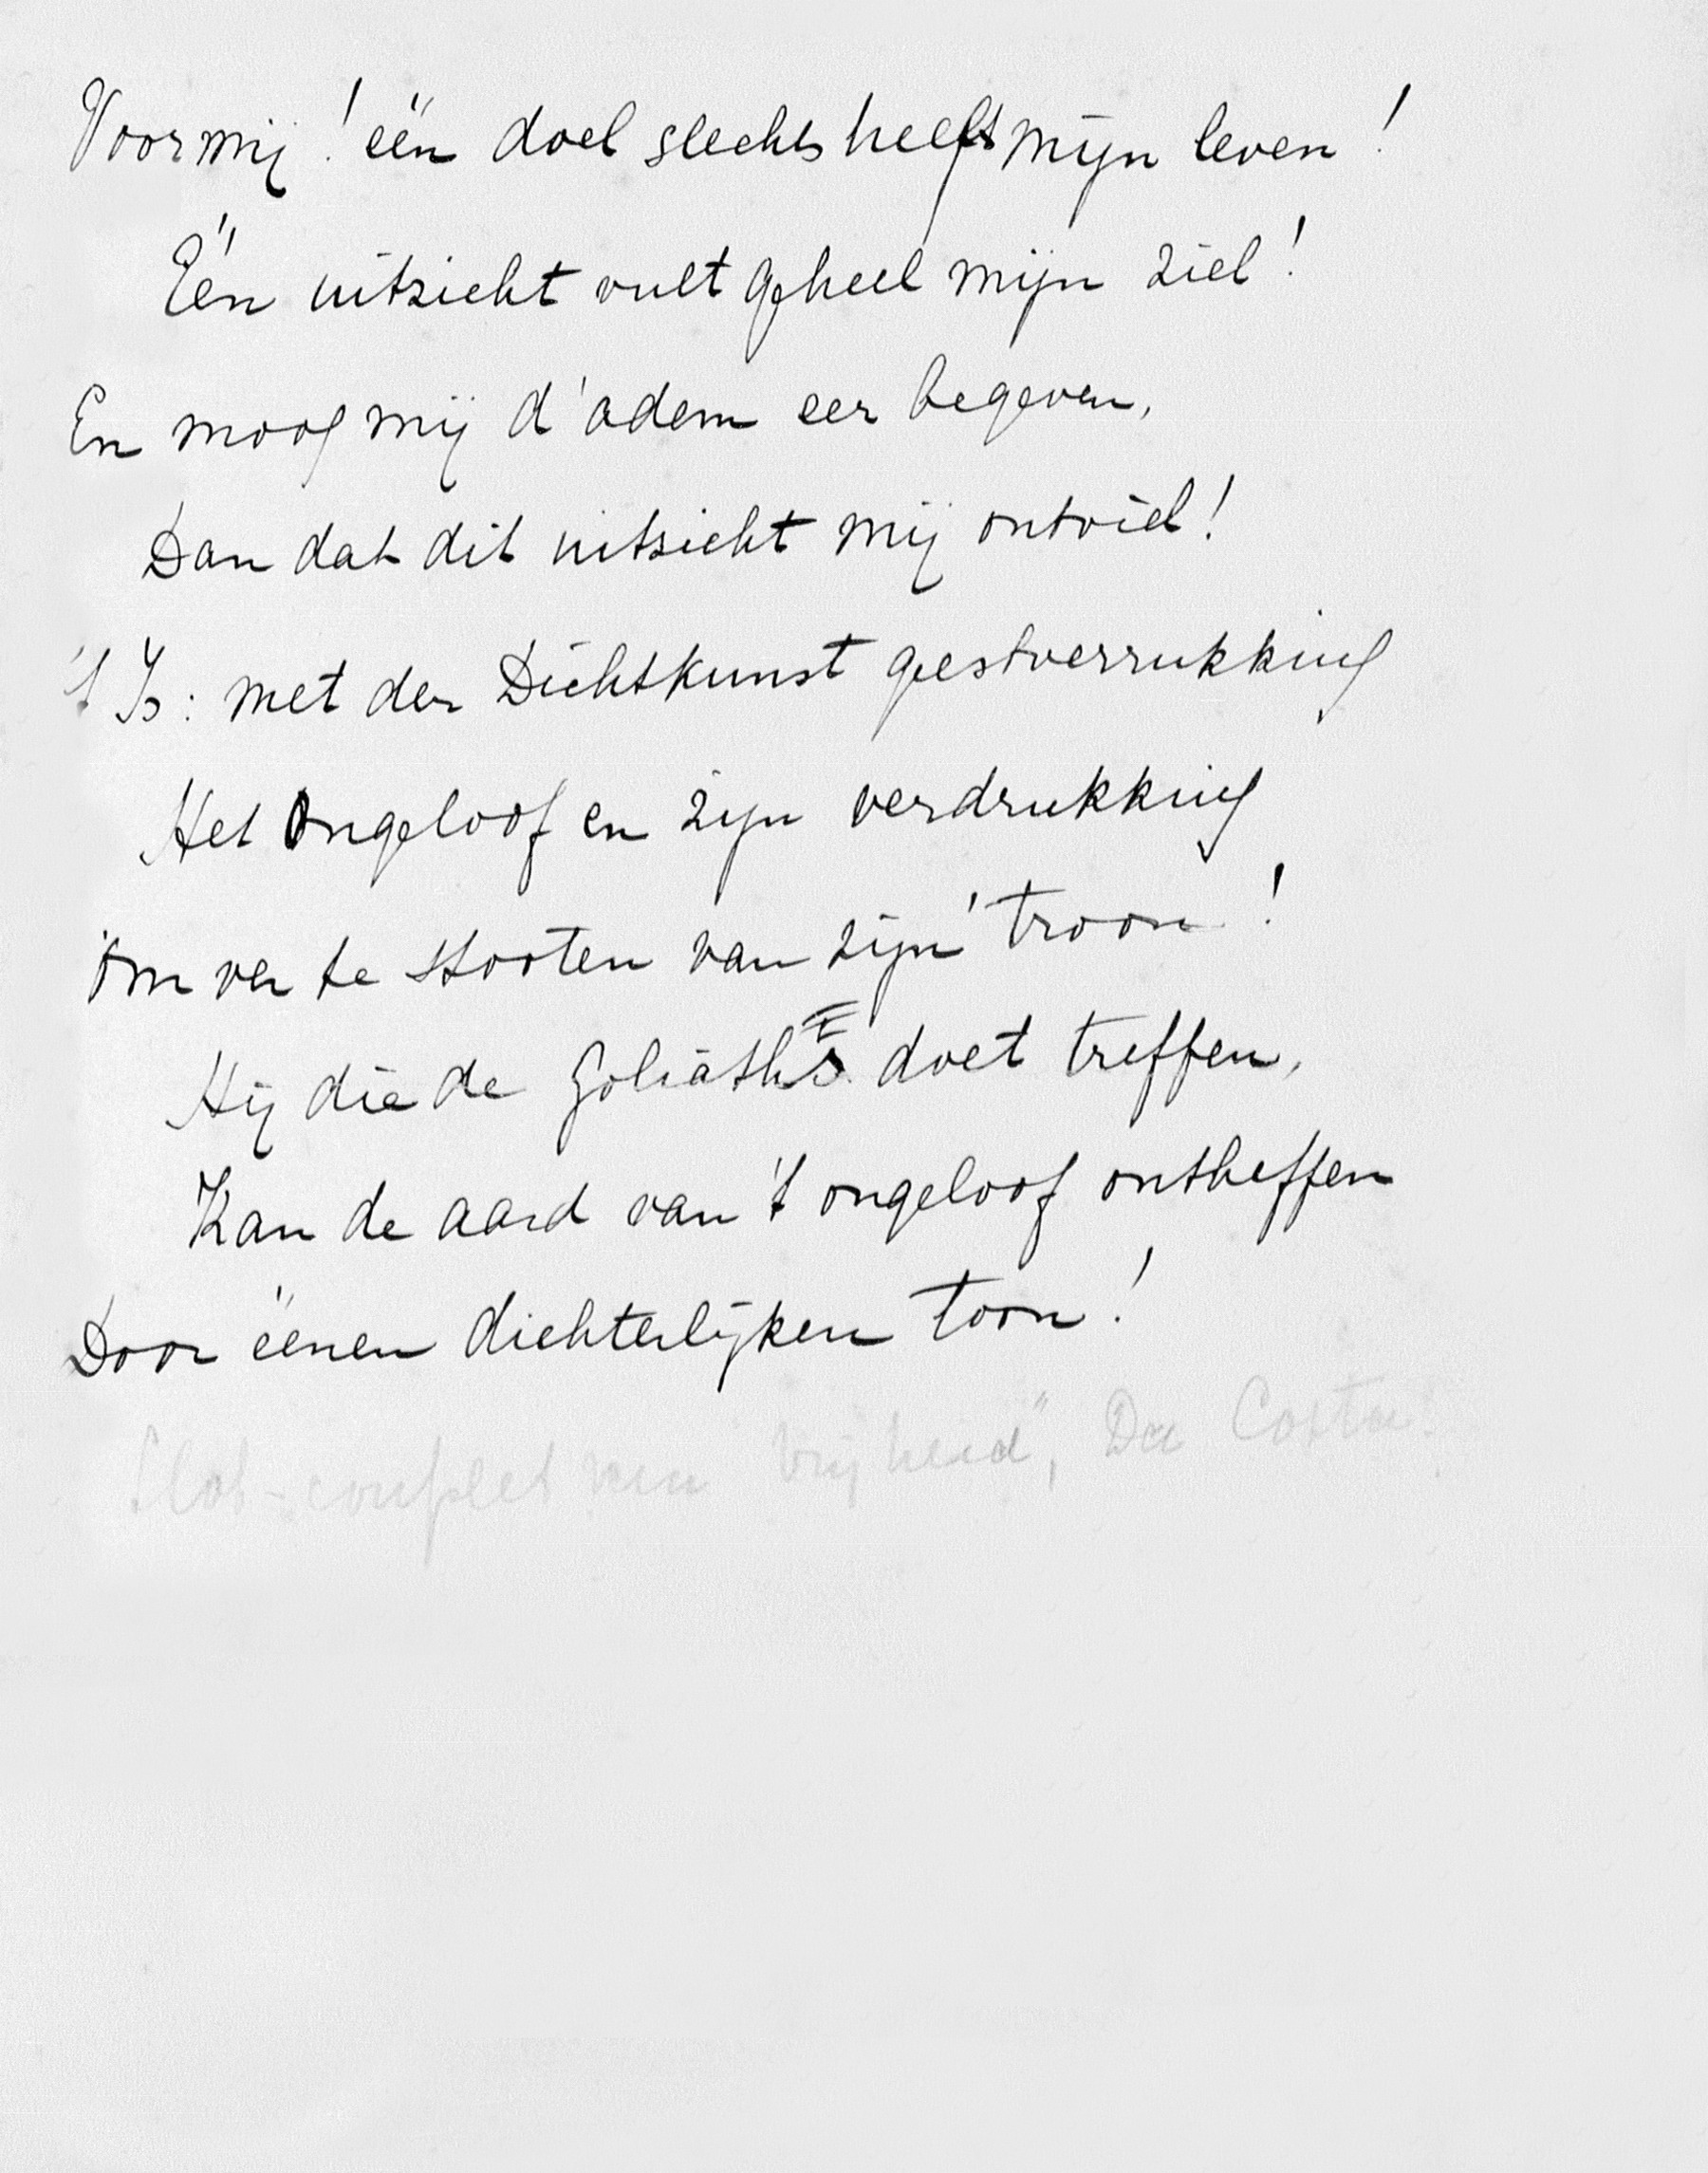 Voor mij! één doel slechts heeft mijn leven!
Eén uitzicht vult geheel mijn ziel!
En moog mij d'adem eer begeven,
Dan dat dit uitzicht mij ontviel!
't Is: met der Dichtkunst geestverrukking
Het Ongeloof en zijn verdrukking
Om ver te stooten van zijn' troon!
Hij die de Goliaths doet treffen,
Kan de aard van 't ongeloof ontheffen
Door éénen dichterlijken toon!
Slot-couplet van "Vrijheid", Da Costa.